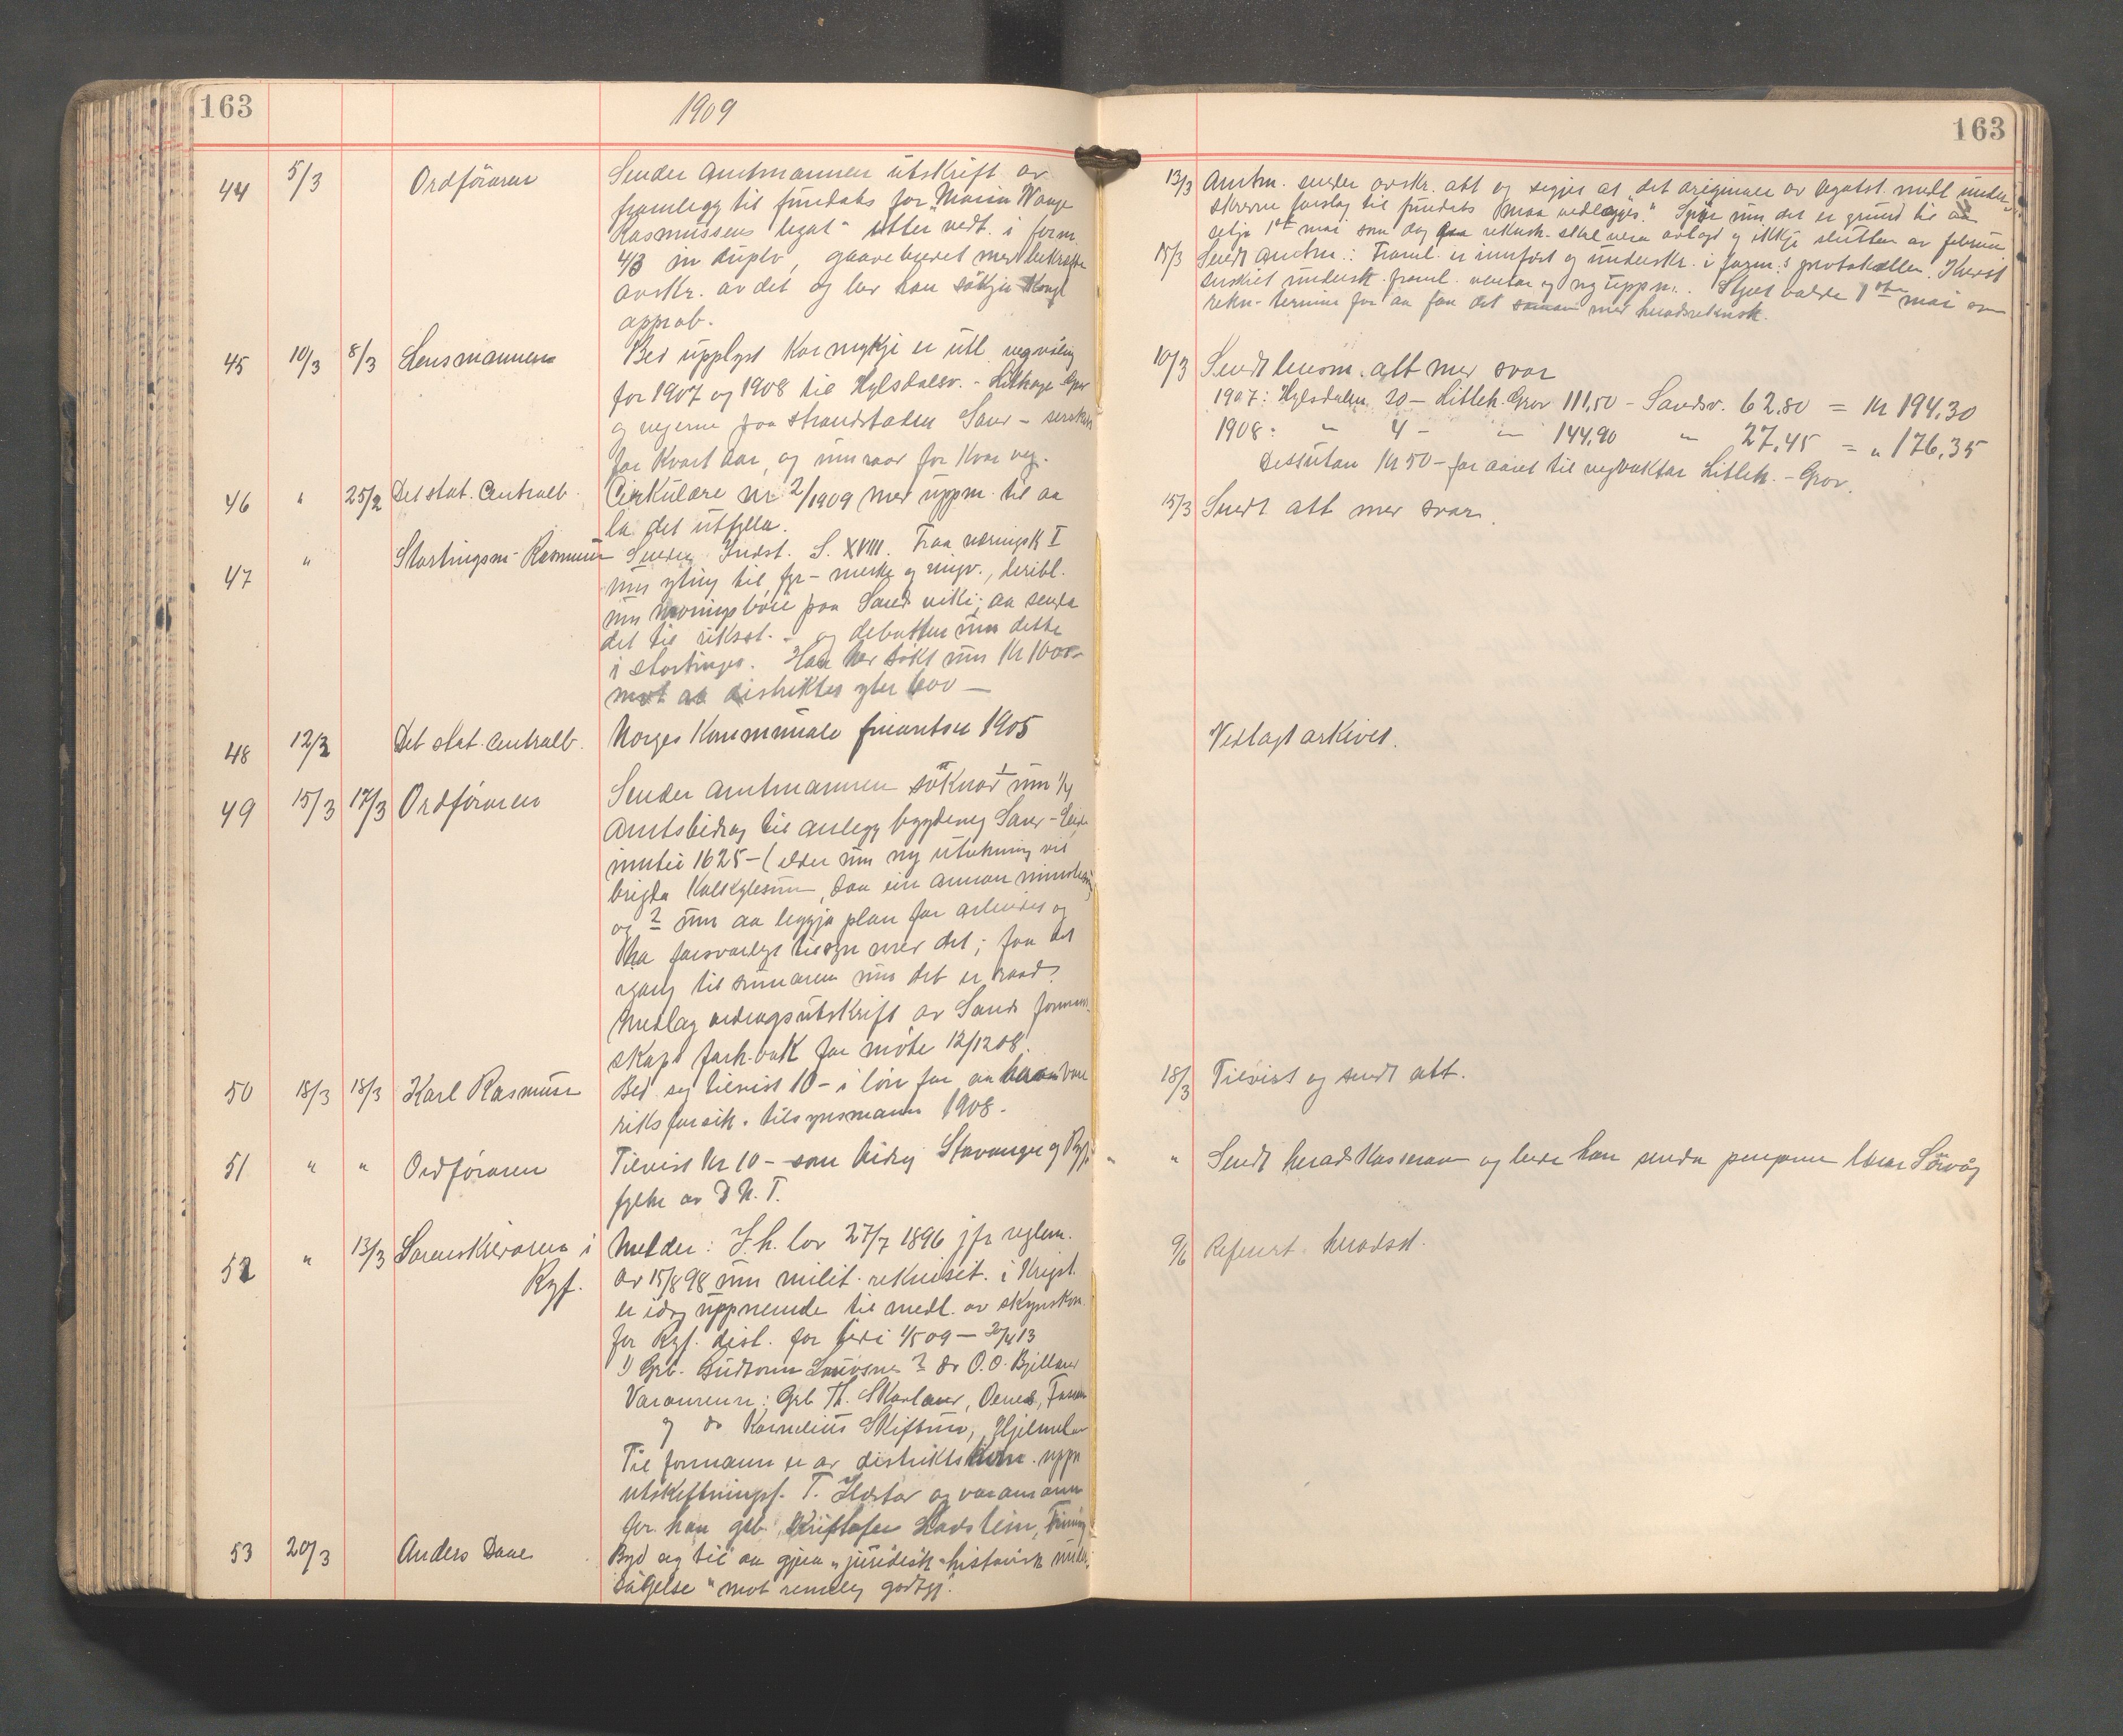 163
1909
44 5/3 Ordföraren
Sender amtmannen utskrift av
framlegg til fundats for "Maria Wange
Rasmussens legat" etter vedt. i form.
4/3 in duplo, gaavebrevet med bekræfte
avskr. av det og ber han søkja Kongl
approb.
45 10/3 8/3 Lensmannen
Bed upplyst kor mykje er utl. vegvöling
for 1907 og 1908 til Hylsdalsv. - Littlehage-Grov
og vegerne paa strandstaden Sand - serskilt
for kvart aar, og umraar for kvar veg.
46 " 25/2 Det stat. Centralb.
Cirkulære nr 2/1909 med uppm. til aa
la det utfylla.
47 " Stortingsm. Rasmussen
Sender Indst. S. XVIII. Fraa næringsk I
um yting til fyr- merke og ringv., deribl.
um
det til riksst. - og debatten um dette
i stortinget. Han har søkt um Kr 1000-
mot at distriktet yter 600 -
48 12/3 Det stat. centralb.
Norges Kommunale finantser 1905
49 15/3 17/3 Ordföraren
Sender amtmannen söknad um 1/4
amtsbidrag til anlegg bygdeveg Sand-Eide
inntil 1625 - (elder um ny utrekning vil
brigda kalkylesum, daa ein annan
og 2 um aa leggja plan for arbeidet og
ha forsvarlegt tilsyn med det; faa det
igang til sumaren um det er raad.
Medlag utdragsutskrift av Sands formann-
skaps forh.bok for möte 12/12 08.
50 18/3 18/3 Karl Rasmussen
Bed seg tilvist 10- i løn for aa ha vore
riksforsik. tilsynsmann 1908.
51 " " Ordföraren
Tilvist Kr 10- som bidrag Stavanger og Ryf.
fylke av D.N.T.
52 " 13/3 Sorenskrivaren i
Ryf.
Melder: I h. lov 27/7 1896 jfr reglem.
av 15/8 98 um milit. rekvisit. i krigst.
er idag uppnemde til medl. av skynskom.
for Ryf. dist. for tidi 1/5 09 - 30/4 13
1) Grb. Gudtorm 2 do O.O. Bjelland
Varamenn: Grb Th. Skarland,
og do Kornelius Skiftun, Hjelmeland
Til formann er av distriktskom. uppn
utskiftningsf. T. og varamann
for han grb. Kristofer
53 20/3 Anders Daae
Byd seg til aa gjera "juridisk-historisk under-
søgelse" mot rimeleg godtgj.
163
13/3 Amtm. sender avskr. att og segjer at "det originale av legatst. medl. under-
skrevne forslag til fundats maa vedlægges." Spyr um det er grund til aa
setja 1ste mai som dag daa reknsk. skal vera avlagt og ikkje slutten av februar
15/3 Sendt Amtm.: Framl. er innført og underskr. i form.s protokollen. Kvart
serskilt undersk. framl. ventar eg ny uppm.. Styret valde 1ste mai som
rekn-termin for aa faa det saman med heradsreknsk.
10/3 Sendt lensm. att med svar
1907: Hylsdalen 20- Littleh. Grov 111,50 - Sandsv. 62.80 = Kr 194.30
1908: " 4- " 144,90 " 27.45 = " 176,35
Dessutan Kr 50- for aaret til vegvaktar Littleh. - Grov.
15/3 Sendt att med svar.
Vedlagt arkivet.
18/3 Tilvist og sendt att.
" " Sendt heradskasseraren og bede han senda pengane lærar Sörvåg
9/6 Referert heradsst.